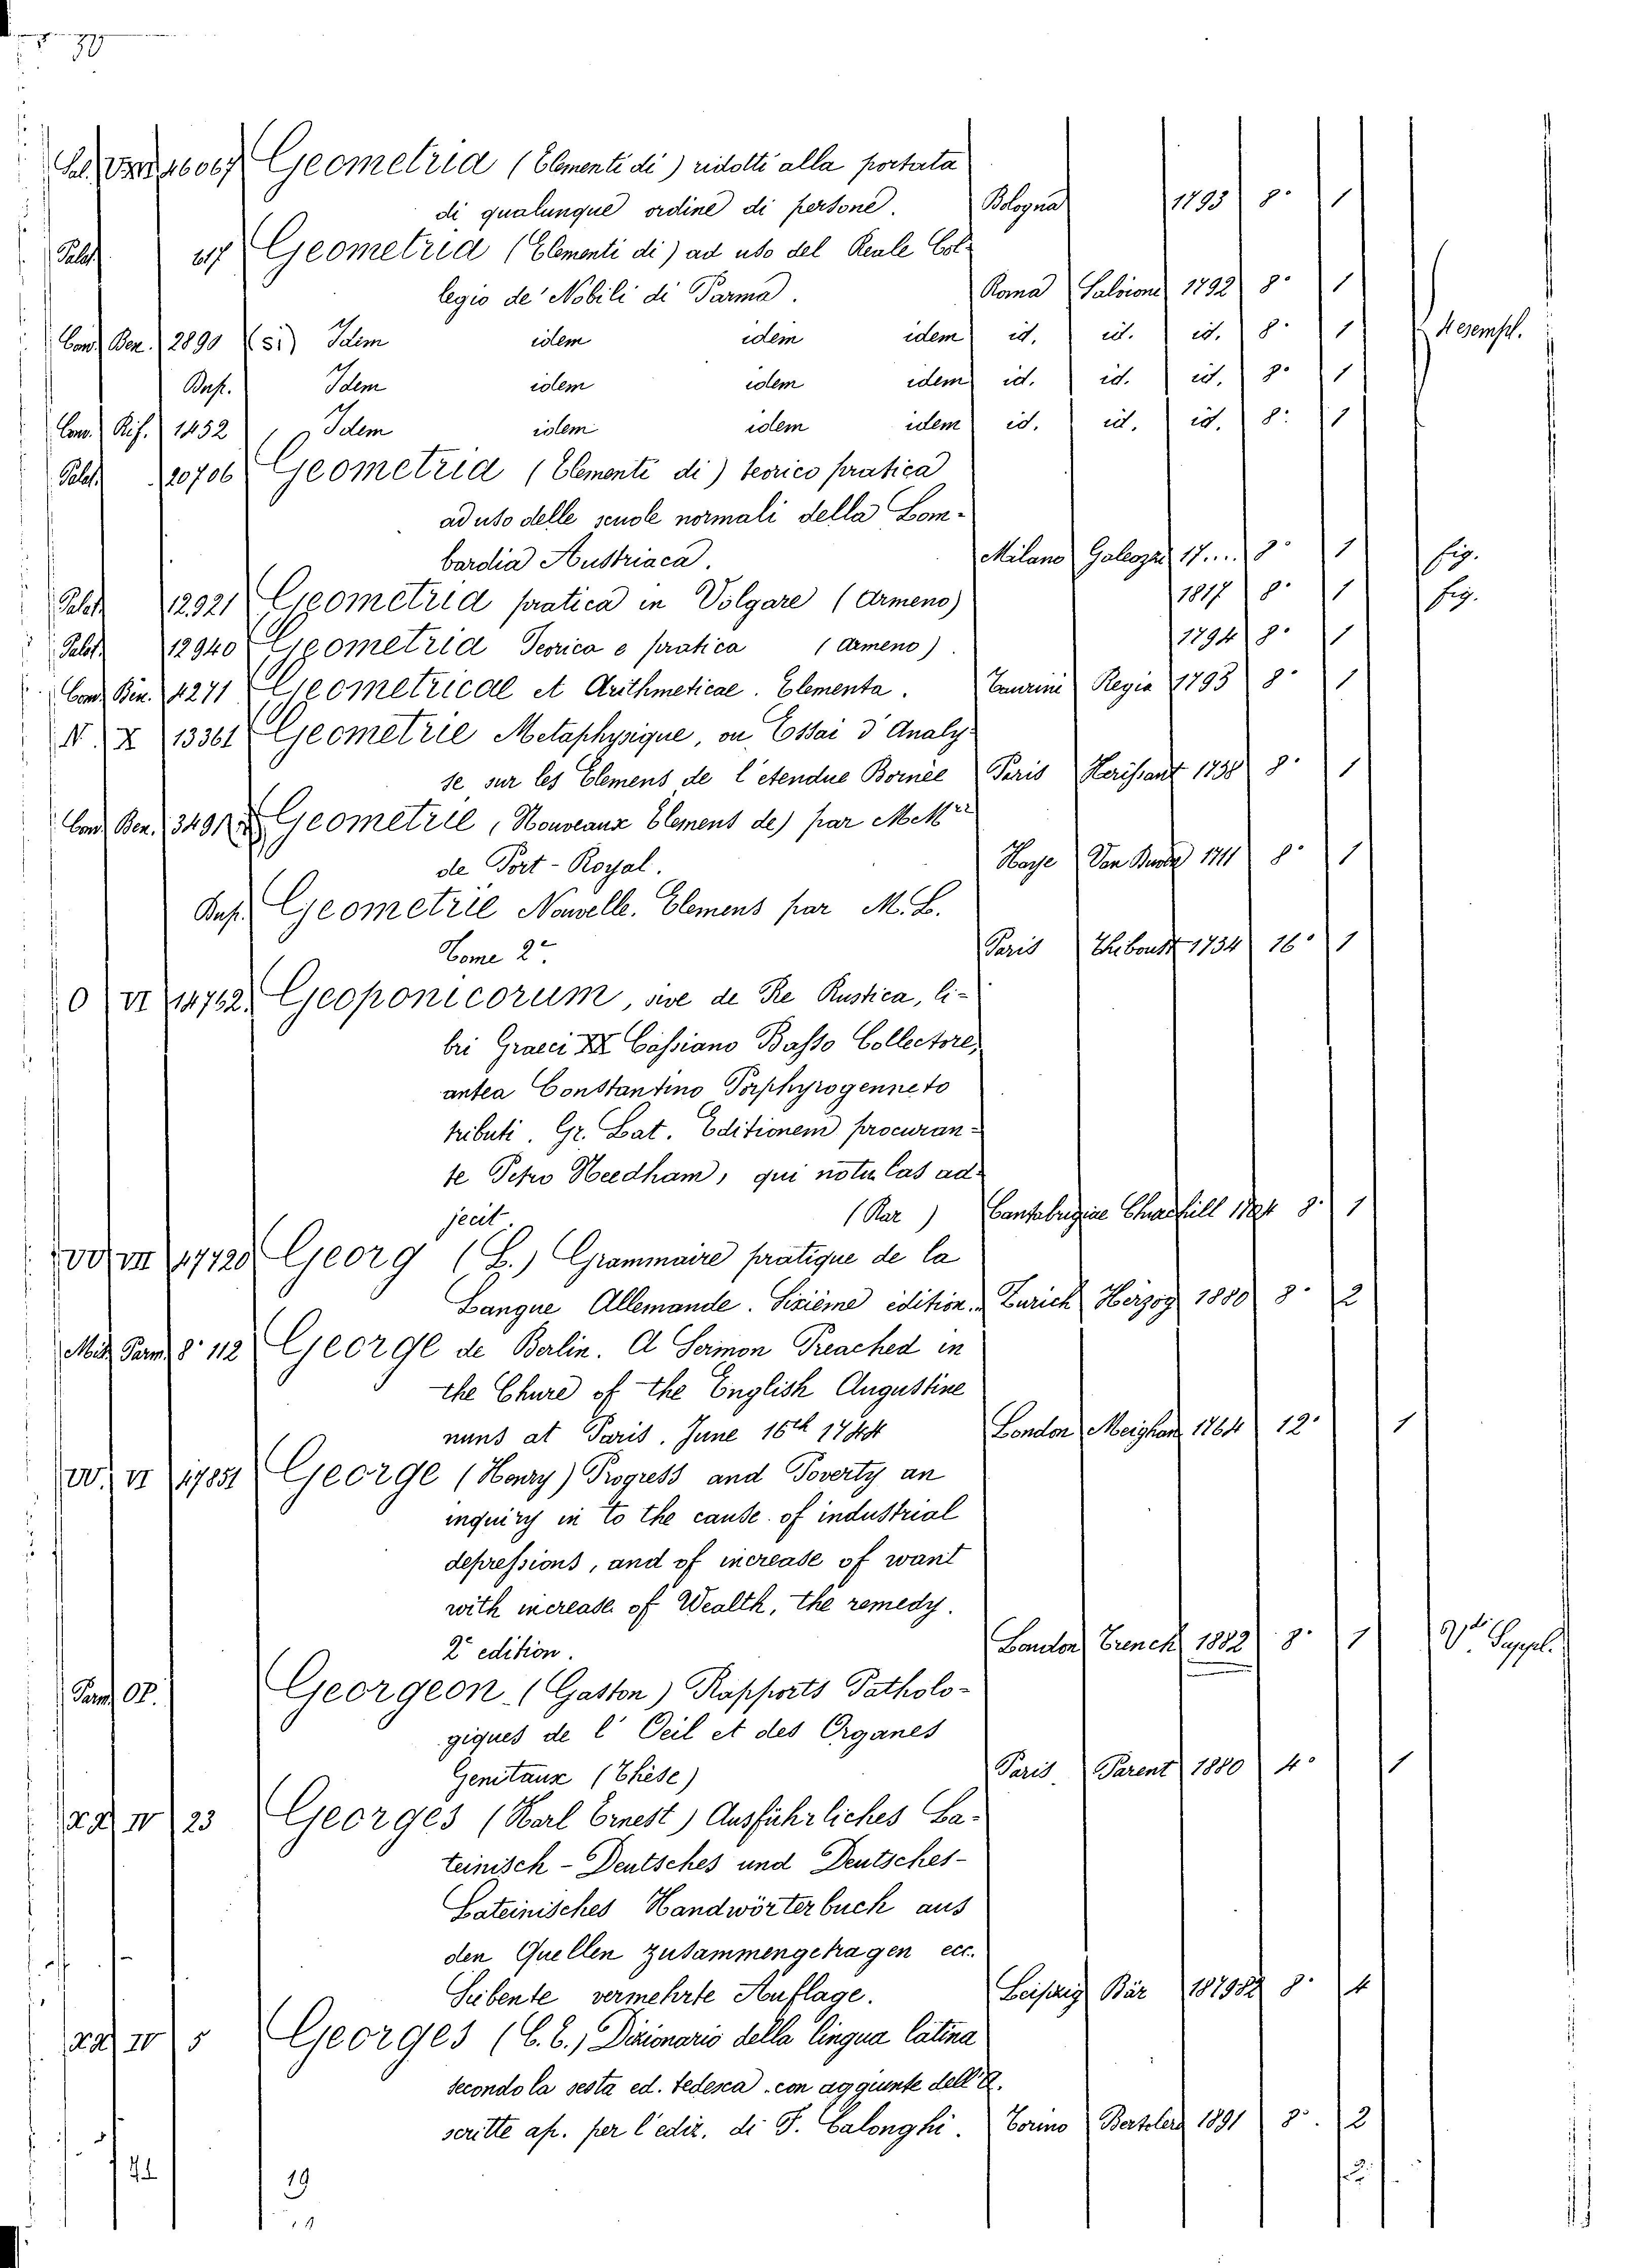 Geometria (Elementi di) ridotti alla portata
di qualunque ordine di persone. Bologna 1793 8° 1
Palat 617 Geometria (Elementi di) ad uso del Reale Col-
legio de' Nobili di Parma. Roma Salvioni 1792 8° 1
Con. Ben. 2890 (si) Idem idem idem idem id. id. id. 8° 1 4 esempl.
Busp. Idem idem idem idem id. id. id. 8° 1
Con. Rif. 1452 Idem idem idem idem id. id. id. 8° 1
Palat. 20706 Geometria (Elementi di) teorico pratica
ad uso delle scuole normali della Lom-
bardia Austriaca. Milano Galeazzi 17... 8° 1 fig.
Palat. 12921 Geometria pratica in Volgare (Armeno) 1817 8° 1 fig.
Palat. 12940 Geometria Teorica e pratica (Armeno). 1794 8° 1
Con. Ben. 4271 Geometricae et Arithmeticae. Elementa. Taurini Regia 1793 8° 1
N. X 13361 Geometrie Metaphysique, ou Essai d'Analy-
se sur les Elemens de l'etendue Bornée Paris Herissant 1738 8° 1
Con. Ben. 3491 Geometrie, Nouveaux Elemens de) par M.Mrs
de Port-Royal. Haye Van 1711 8° 1
Busp. Geometrie Nouvelle. Elemens par M. L.
Tome 2°. Paris Thiboust 1734 16° 1
O VI 14762 Geoponicorum, sive de Re Rustica, li-
bri Graeci XX Cassiano Basso Collectore,
antea Constantino Porphyrogenneto
tributi. Gr. Lat. Editionem procuran-
te Petro Needham, qui notulas ad-
jecit. (Rar) Cantabrigiae Churchill 8° 1
VII 17720 Georg (L.) Grammaire pratique de la
Langue Allemande. Sixième edition. Zurich Herzog 1880 8° 2
Mis. Parm. 8° 112 George de Berlin. A Sermon Preached in
the Chure of the English Augustine
nuns at Paris. June 16th London Meighan 1764 12° 1
W. VI 17851 George (Henry) Progress and Poverty an
inquiry in to the cause of industrial
depressions, and of increase of want
with increase of Wealth, the remedy.
2° edition. London Trench 1882 8° 1 Vdi Suppl.
Parm. OP. Georgeon (Gaston) Rapports Patholo-
giques de l'Oeil et des Organes
Genitaux (Thèse) Paris Parent 1880 4° 1
IV 23 Georges (Karl Ernest) Ausführliches La-
teinisch-Deutsches und Deutsches-
Lateinisches Handwörterbuch aus
den Quellen zusammengetragen ecc.
Siebente vermehrte Auflage. Leipzig Bär 187982 8° 4
IV 5 Georges (C. E.) Dizionario della lingua latina
secondo la sesta ed. tedesca con aggiunte dell'A.
scritte ap. per l'ediz. di F. Calonghi. Torino 1891 8°. 2
19